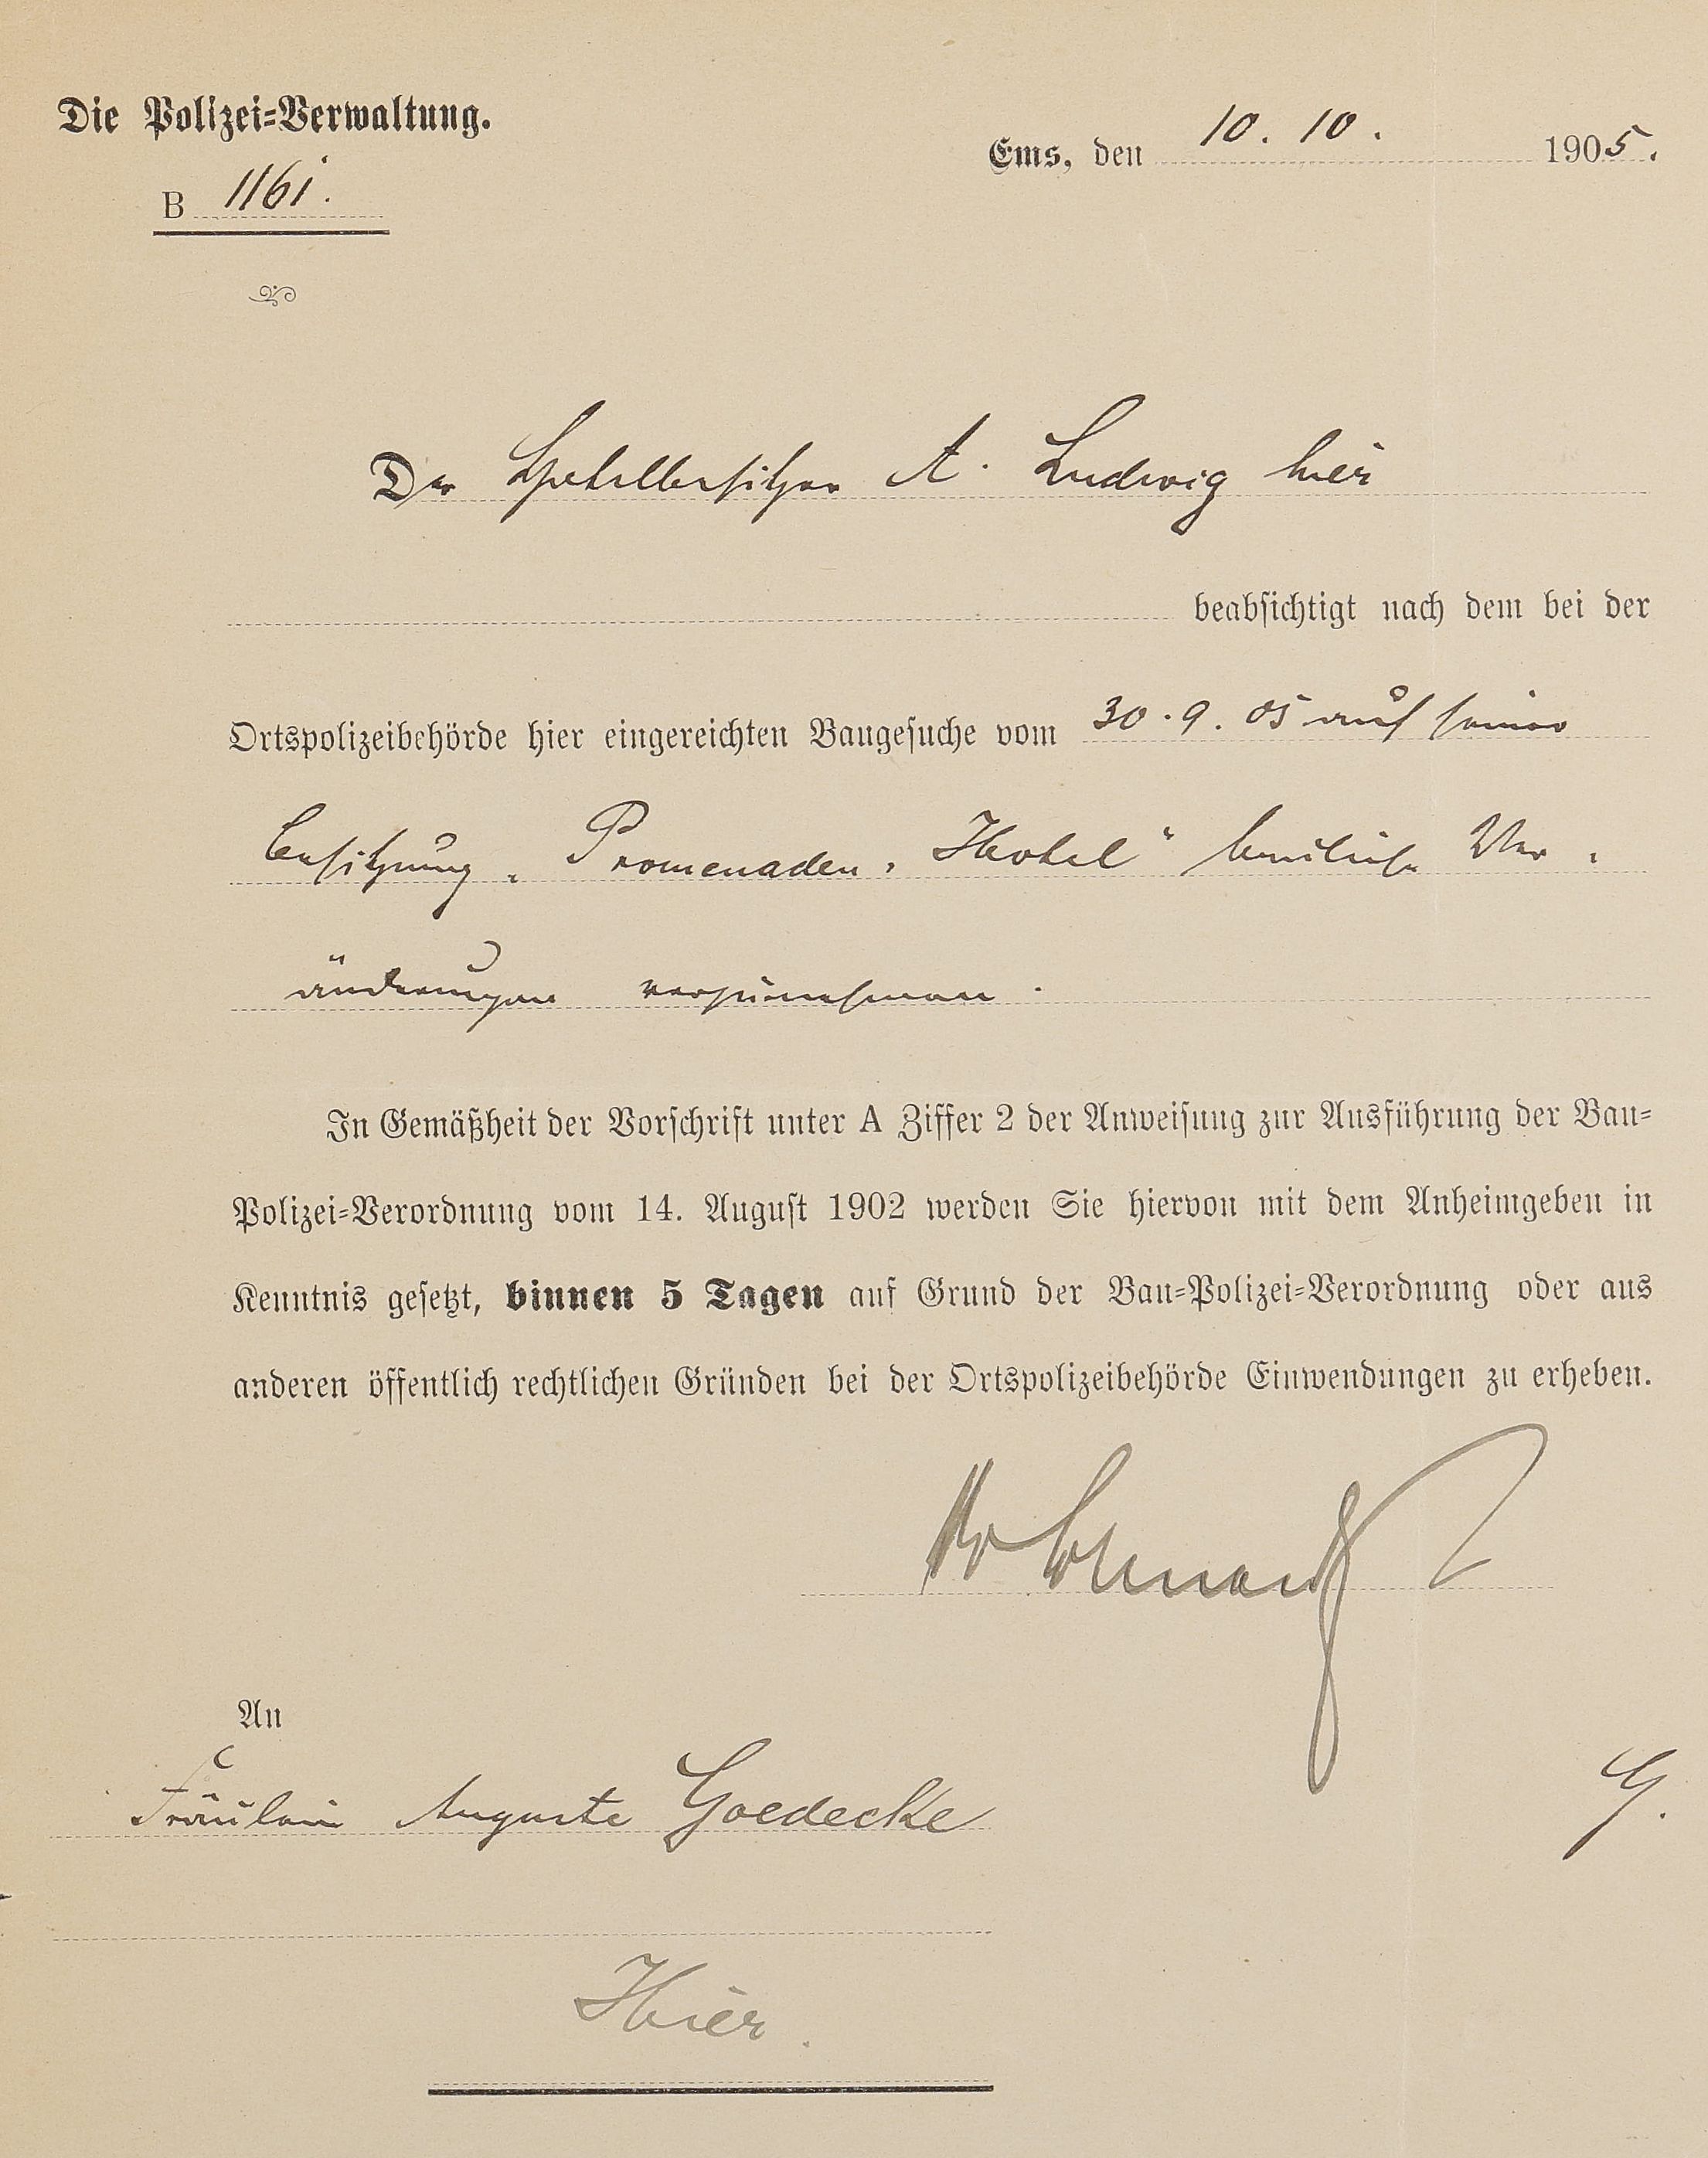 Die Polizei=Verwaltung.
Ems, den 10. 10. 1905.
B 1161.
Der Hotelbesitzer A. Ludwig hier
beabsichtigt nach dem bei der
Ortspolizeibehörde hier eingereichten Baugesuche vom 30.9.05 auf seiner
Besitzung „Promenaden-Hotel“ bauliche Ver-
änderungen vorzunehmen.
In Gemäßheit der Vorschrift unter A Ziffer 2 der Anweisung zur Ausführung der Bau=
Polizei=Verordnung vom 14. August 1902 werden Sie hiervon mit dem Anheimgeben in
Kenntnis gesetzt, binnen 5 Tagen auf Grund der Bau=Polizei=Verordnung oder aus
anderen öffentlich rechtlichen Gründen bei der Ortspolizeibehörde Einwendungen zu erheben.
An
Fräulein Auguste Goedecke
G.
Hier.